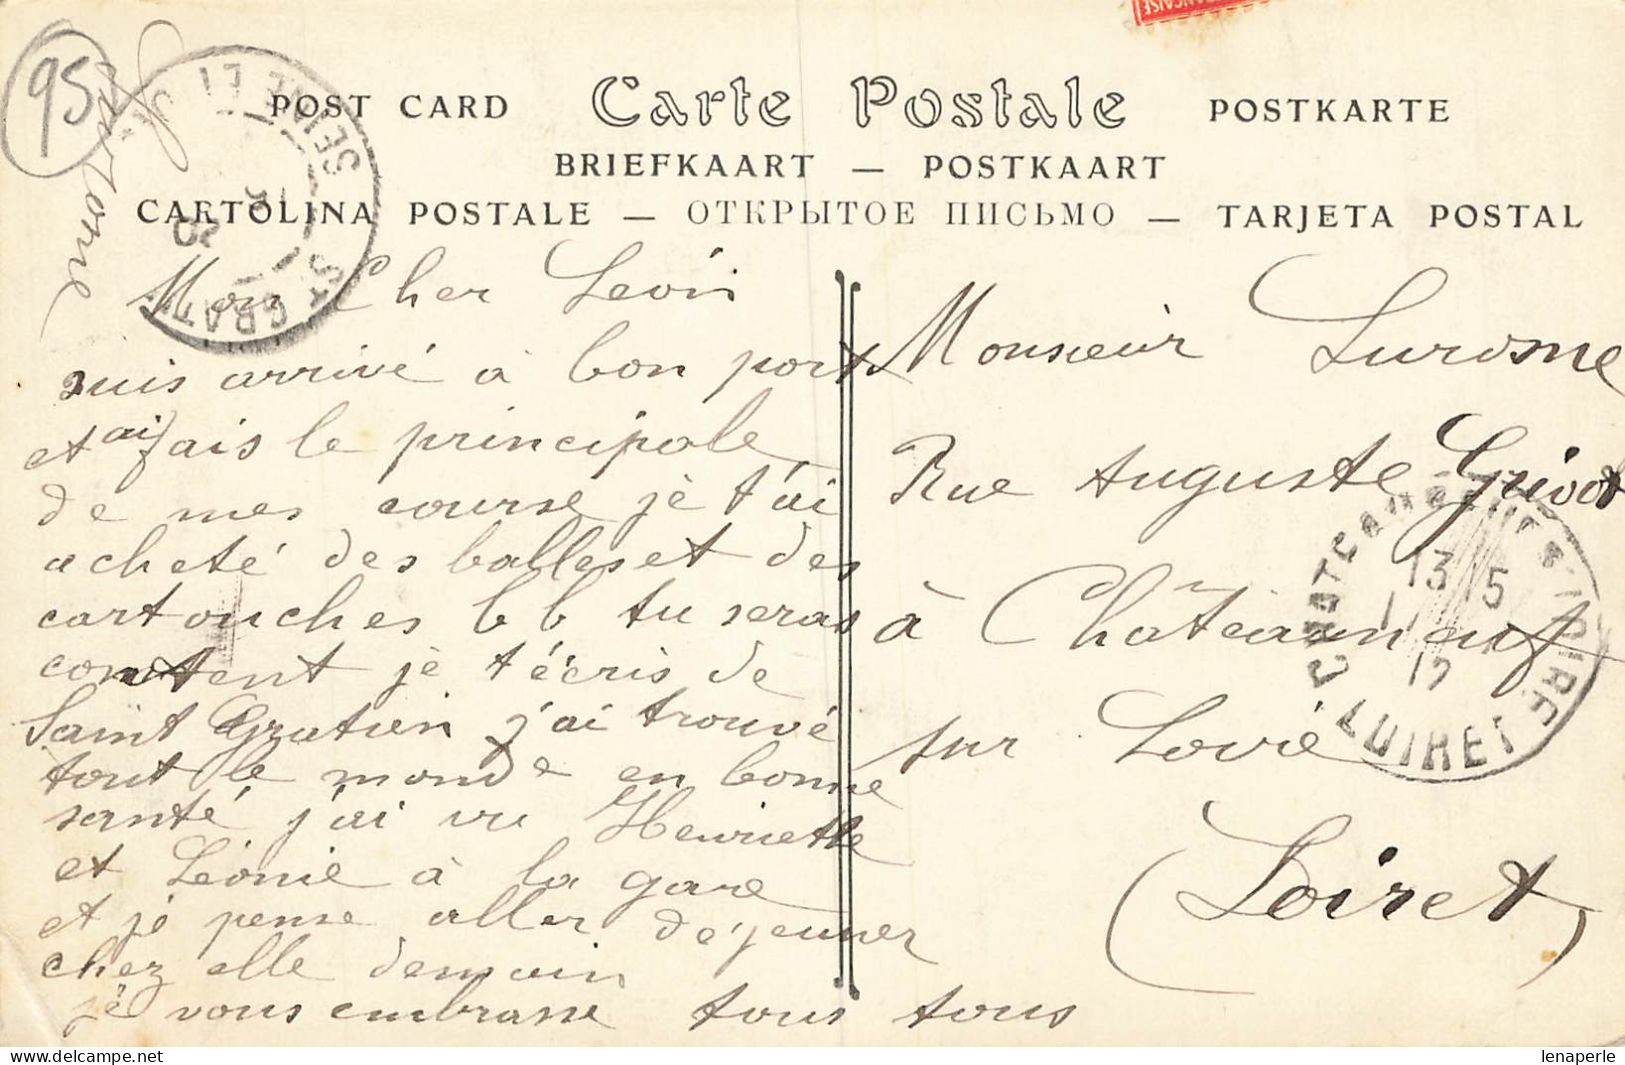 95
POST CARD Carte Postale POSTKARTE
BRIEFKAART — POSTKAART
CARTOLINA POSTALE — ОТКРЫТОЕ ПИСЬМО — TARJETA POSTAL
SEINE ET
ST GRATI
Mon Cher Leon
suis arrivé à bon port
et ai fais le principale
de mes course je t'ai
acheté des balles et des
cartouches b b tu seras
content je t'écris de
Saint Gratien j'ai trouvé
tout le monde en bonne
santé j'ai vu Henriette
et Léonie à la gare
et je pense aller déjeuner
chez elle demain
je vous embrasse tous tous
Monsieur Lurosne
Rue Auguste Grivot
à Châteauneuf
sur Loire
(Loiret)
CHATEAUNEUF S LOIRE
13 15
12
LOIRET
www.delcampe.net
lenaperle